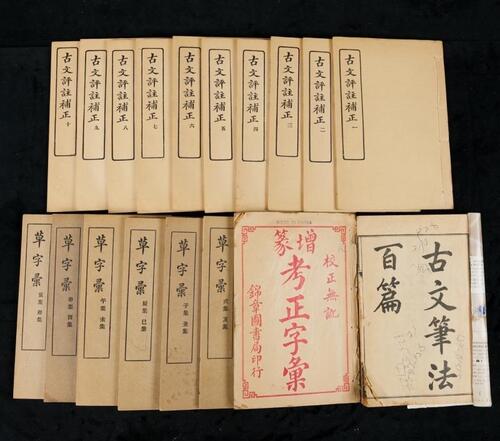 古文評註補正 一
古文評註補正 二
古文評註補正 三
古文評註補正 四
古文評註補正 五
古文評註補正 六
古文評註補正 七
古文評註補正 八
古文評註補正 九
古文評註補正 十
古文筆法
百篇
校正無訛
增篆
考正字彙
錦章圖書局印行
草字彙 戌集 亥集
草字彙 子集 丑集
草字彙 辰集 巳集
草字彙 午集 未集
草字彙 申集 酉集
草字彙 寅集 卯集